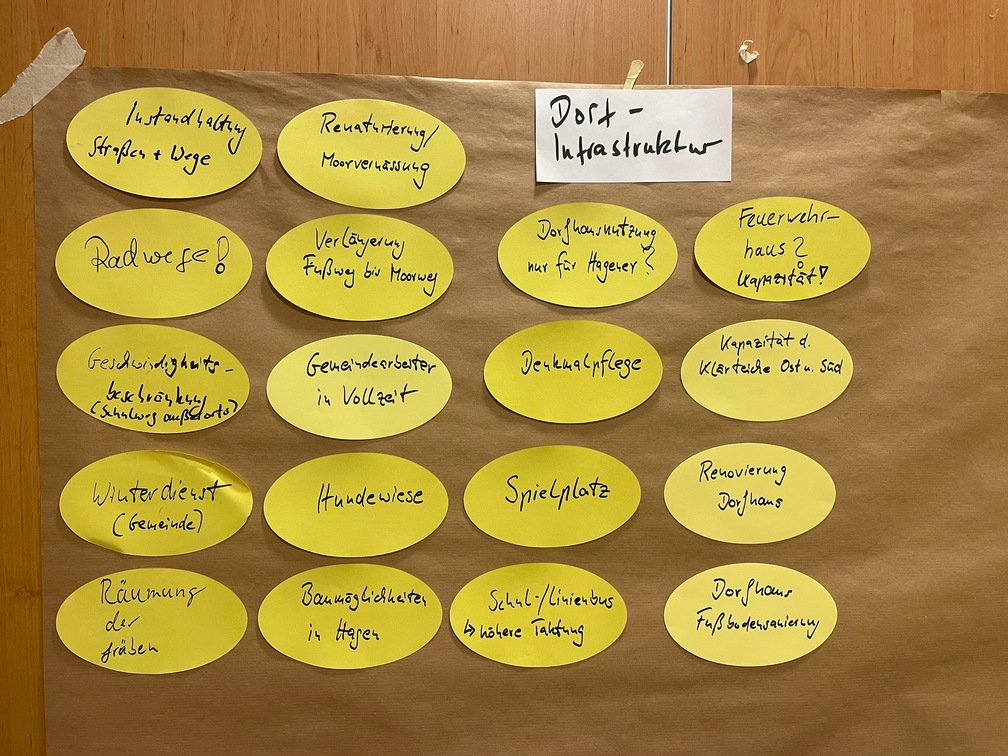 Dorf-
Infrastruktur
Instandhaltung
Straßen + Wege
Renaturierung/
Moorvernässung
Radwege!
Verlängerung
Fußweg bis Moorweg
Dorfhausnutzung
nur für Hagener?
Feuerwehr-
haus?
Kapazität!
Geschwindigkeits-
beschränkung
(Schulweg außerorts)
Gemeindearbeiter
in Vollzeit
Denkmalpflege
Kapazität d.
Klärteiche Ost u. Süd
Winterdienst
(Gemeinde)
Hundewiese
Spielplatz
Renovierung
Dorfhaus
Räumung
der
Gräben
Baumöglichkeiten
in Hagen
Schul-/Linienbus
↳ höhere Taktung
Dorfhaus
Fußbodensanierung